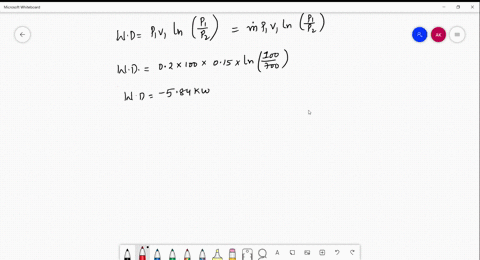 Microsoft Whiteboard
W.D = P₁ V₁ ln (P₁/P₂) = ṁ P₁ V₁ ln (P₁/P₂)
W.D. = 0.2 × 100 × 0.15 × ln (100/700)
W.D = -5.84 KW
AK
A